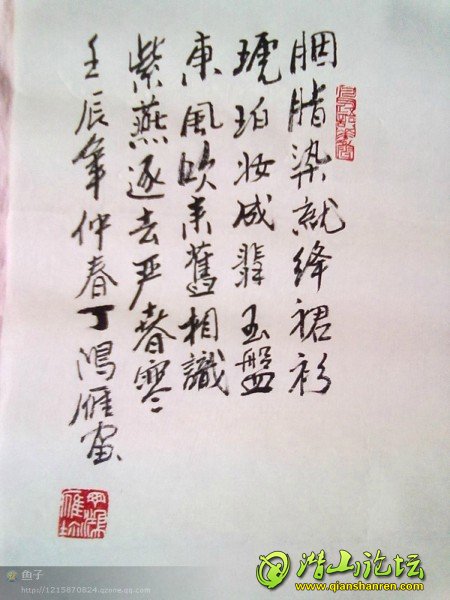 胭脂染就绛裙衫
琥珀妆成翡玉盘
东风吹来舊相識
紫燕逐去严春寒
壬辰年仲春丁鴻雁画
鱼子
http://1215670824.qzone.qq.com
潜山论坛
www.qianshanren.com